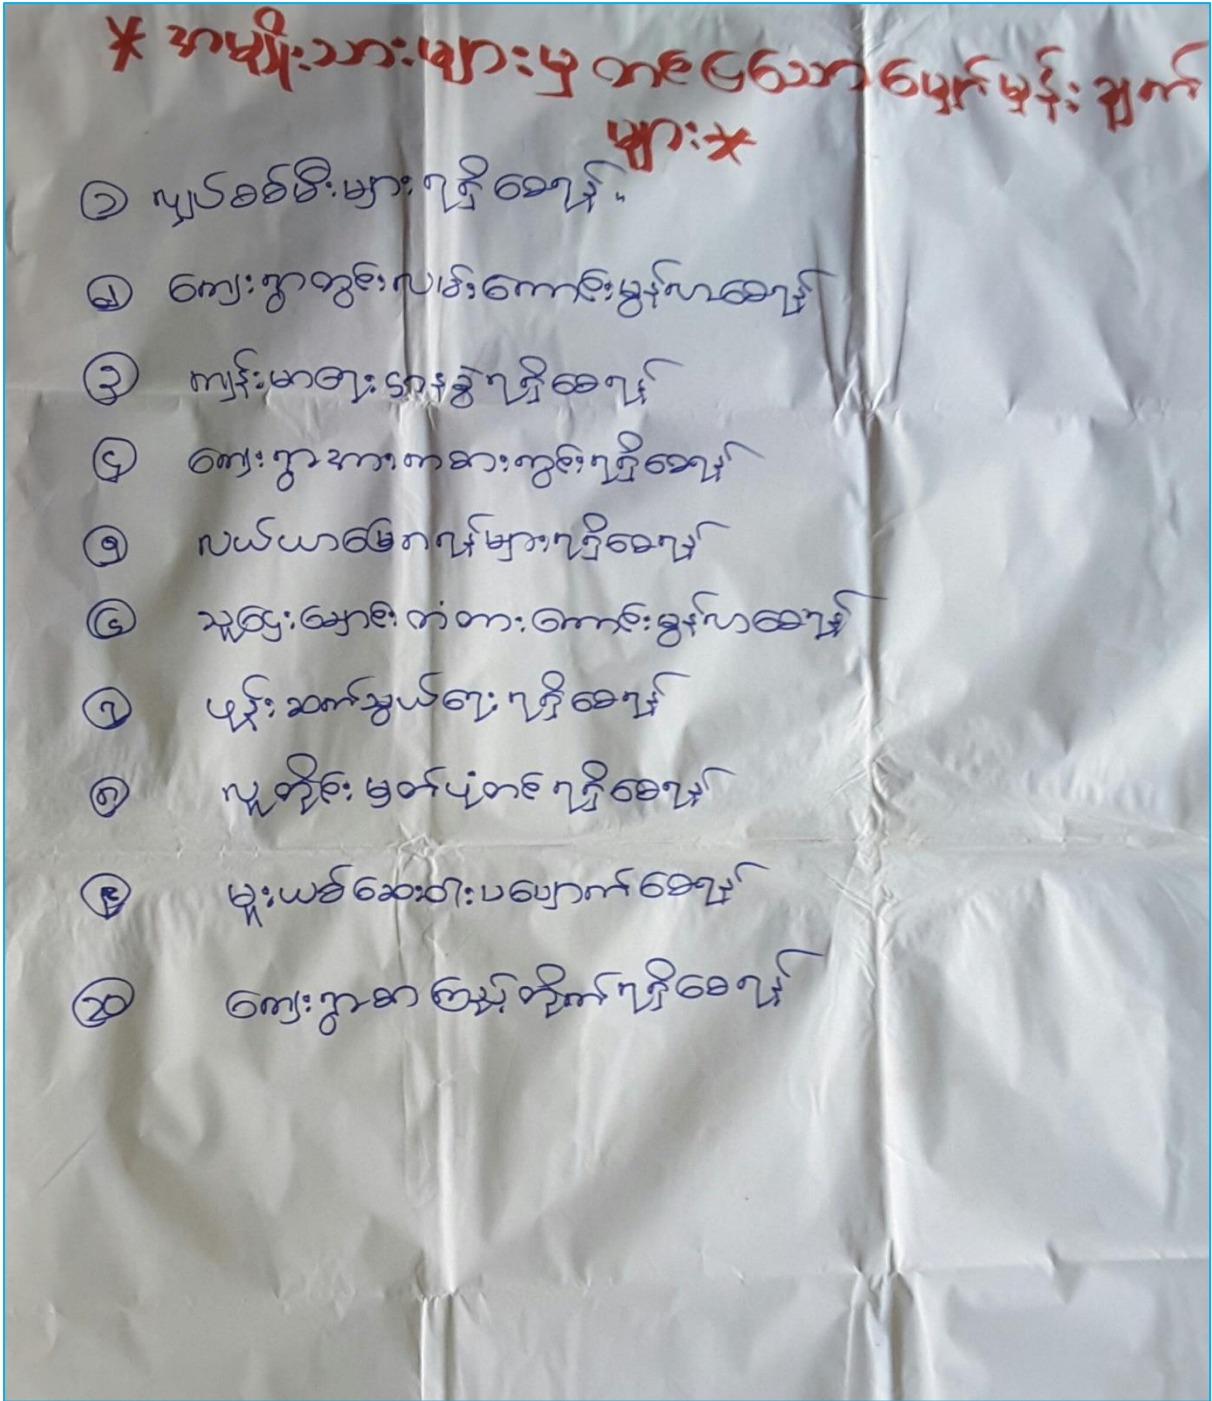 * အမျိုးသားများမှ တင်ပြသော မျှော်မှန်းချက်
များ *
၁ လျှပ်စစ်မီးများရရှိစေရန်။
၂ ကျေးရွာတွင်းလမ်းကောင်းမွန်လာစေရန်
၃ ကျန်းမာရေးဌာနခွဲရရှိစေရန်
၄ ကျေးရွာအားကစားကွင်းရရှိစေရန်
၅ လယ်ယာမြေဂရန်များရရှိစေရန်
၆ သူဌေးချောင်းတံတားကောင်းမွန်လာစေရန်
၇ ဖုန်းဆက်သွယ်ရေးရရှိစေရန်
၈ လူတိုင်းမှတ်ပုံတင်ရရှိစေရန်
၉ မူးယစ်ဆေးဝါးပပျောက်စေရန်
၁၀ ကျေးရွာစာကြည့်တိုက်ရရှိစေရန်